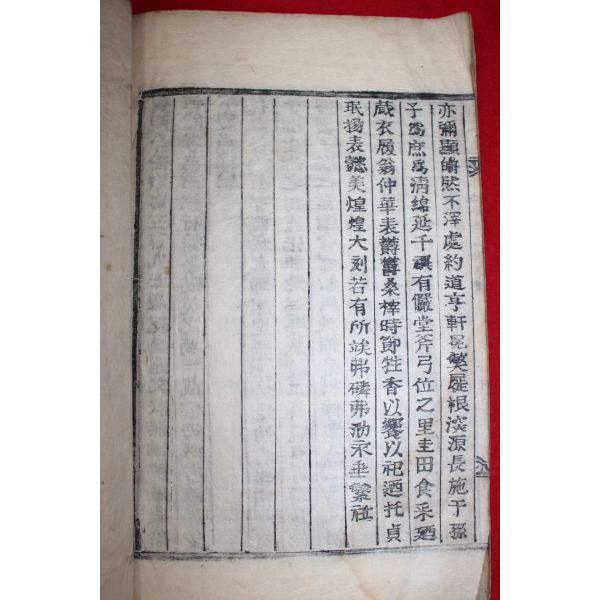 亦彌顯皭然不滓處約道亨軒冕奚屣根深源長施于孫
子爲庶爲淸綿延千禩有儼堂斧弓位之里圭田食采廼
蕆衣履翁仲華表欝欝桑梓時節牲香以饗以祀廼托貞
珉揚表懿美煌煌大刻若有所竢弗磷弗泐永垂繁祉